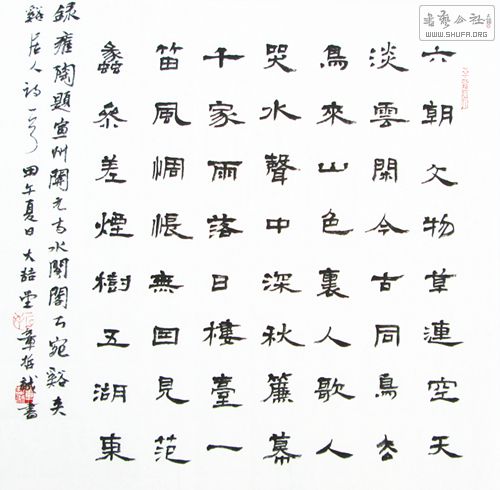 六朝文物草連空天
淡雲閑今古同鳥去
鳥來山色裏人歌人
哭水聲中深秋簾幕
千家雨落日樓臺一
笛風惆悵無因見范
蠡參差煙樹五湖東
錄雍陶題宣州開元寺水閣閣下宛谿夾
谿居人詩一首 甲午夏日 大喆堂 章 書
書藝公社
WWW.SHUFA.ORG